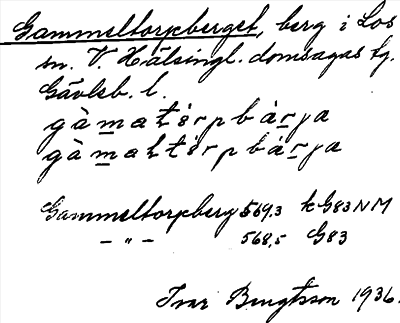 Gammeltorpberget, berg i Los
sn. V. Hälsingl. domsagas tg.
Gävleb. l.
gàmatórpbárja
gàmaltórpbárja
Gammeltorpberg 569,3 k G83 NM
— " — 568,5 G83
Ivar Bengtsson 1936.